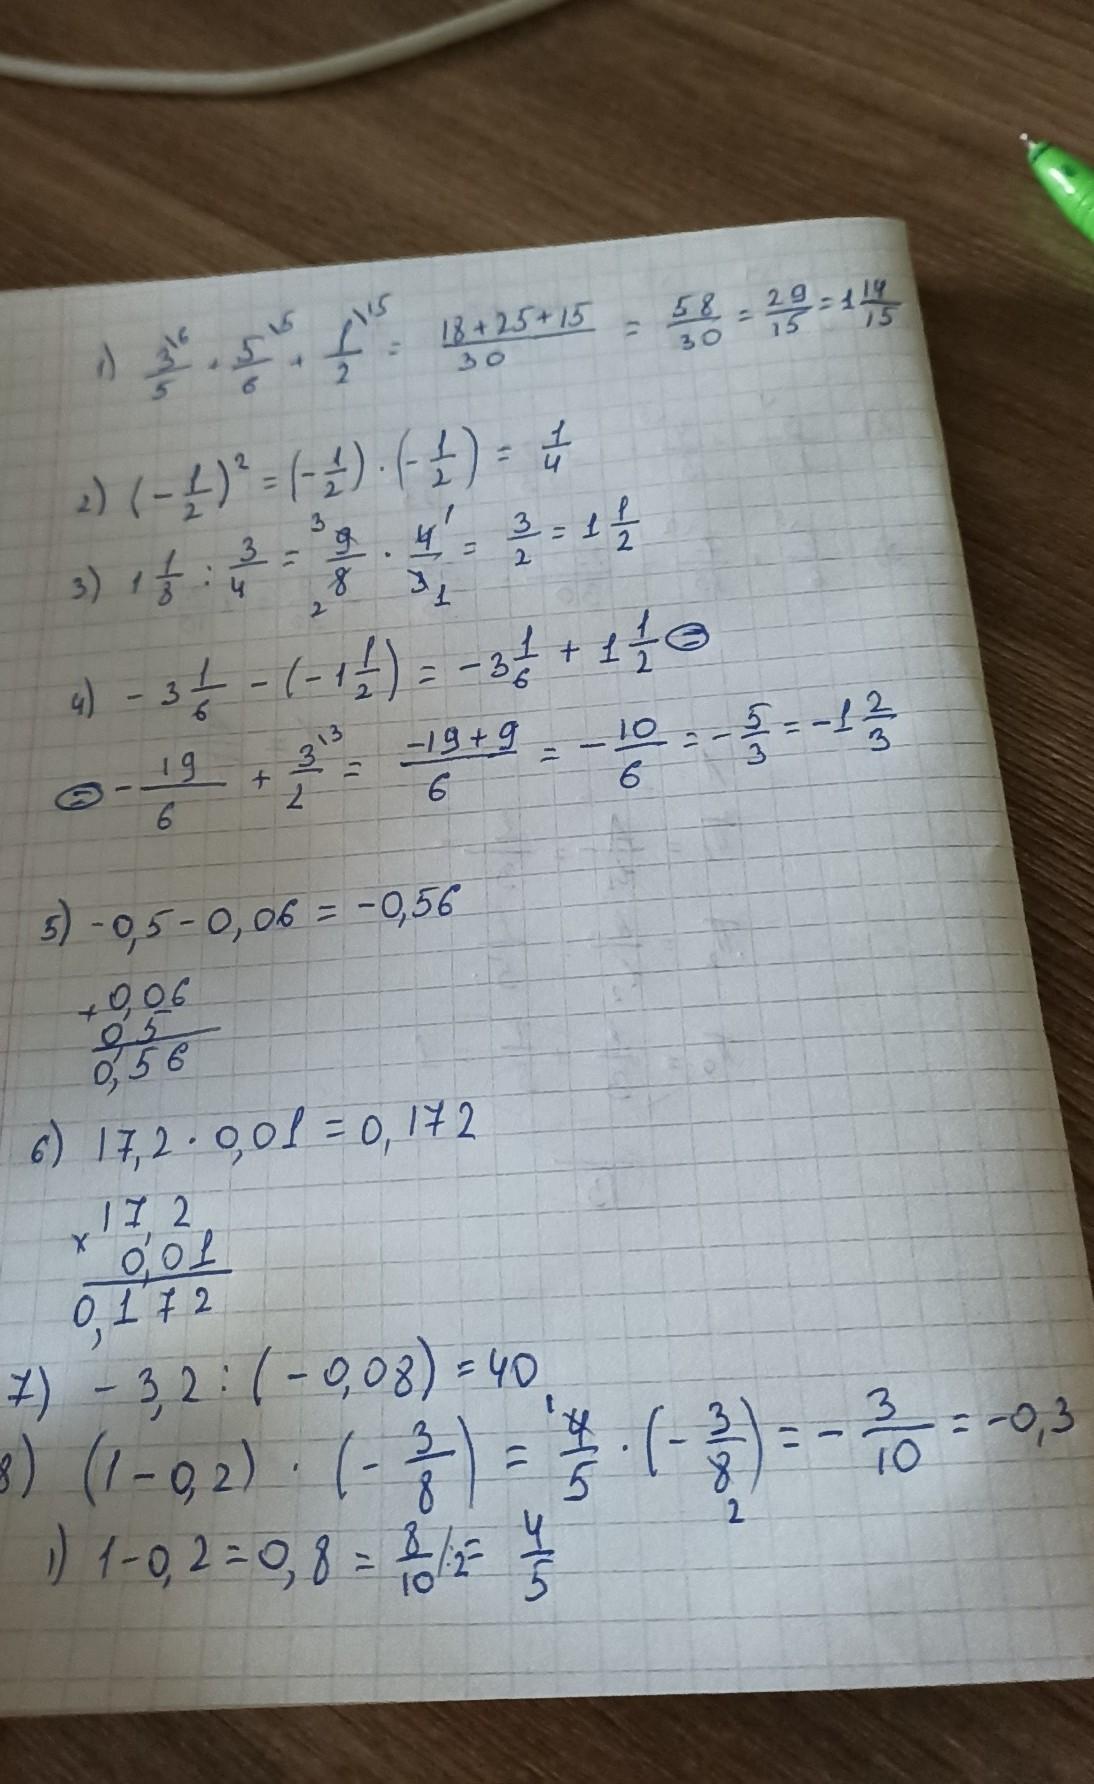 1) 3\6/5 + 5\5/6 + 1\15/2 = (18+25+15)/30 = 58/30 = 29/15 = 1 14/15
2) (-1/2)² = (-1/2) · (-1/2) = 1/4
3) 1 1/8 : 3/4 = ³9/8₂ · 4¹/3₁ = 3/2 = 1 1/2
4) -3 1/6 - (-1 1/2) = -3 1/6 + 1 1/2 =
= -19/6 + 3\3/2 = (-19+9)/6 = -10/6 = -5/3 = -1 2/3
5) -0,5-0,06 = -0,56
+0,06
0,5
0,56
6) 17,2 · 0,01 = 0,172
x 17,2
0,01
0,172
7) -3,2 : (-0,08) = 40
8) (1-0,2) · (-3/8) = ¹4/5 · (-3/8₂) = -3/10 = -0,3
1) 1-0,2 = 0,8 = 8/10 /:2 = 4/5